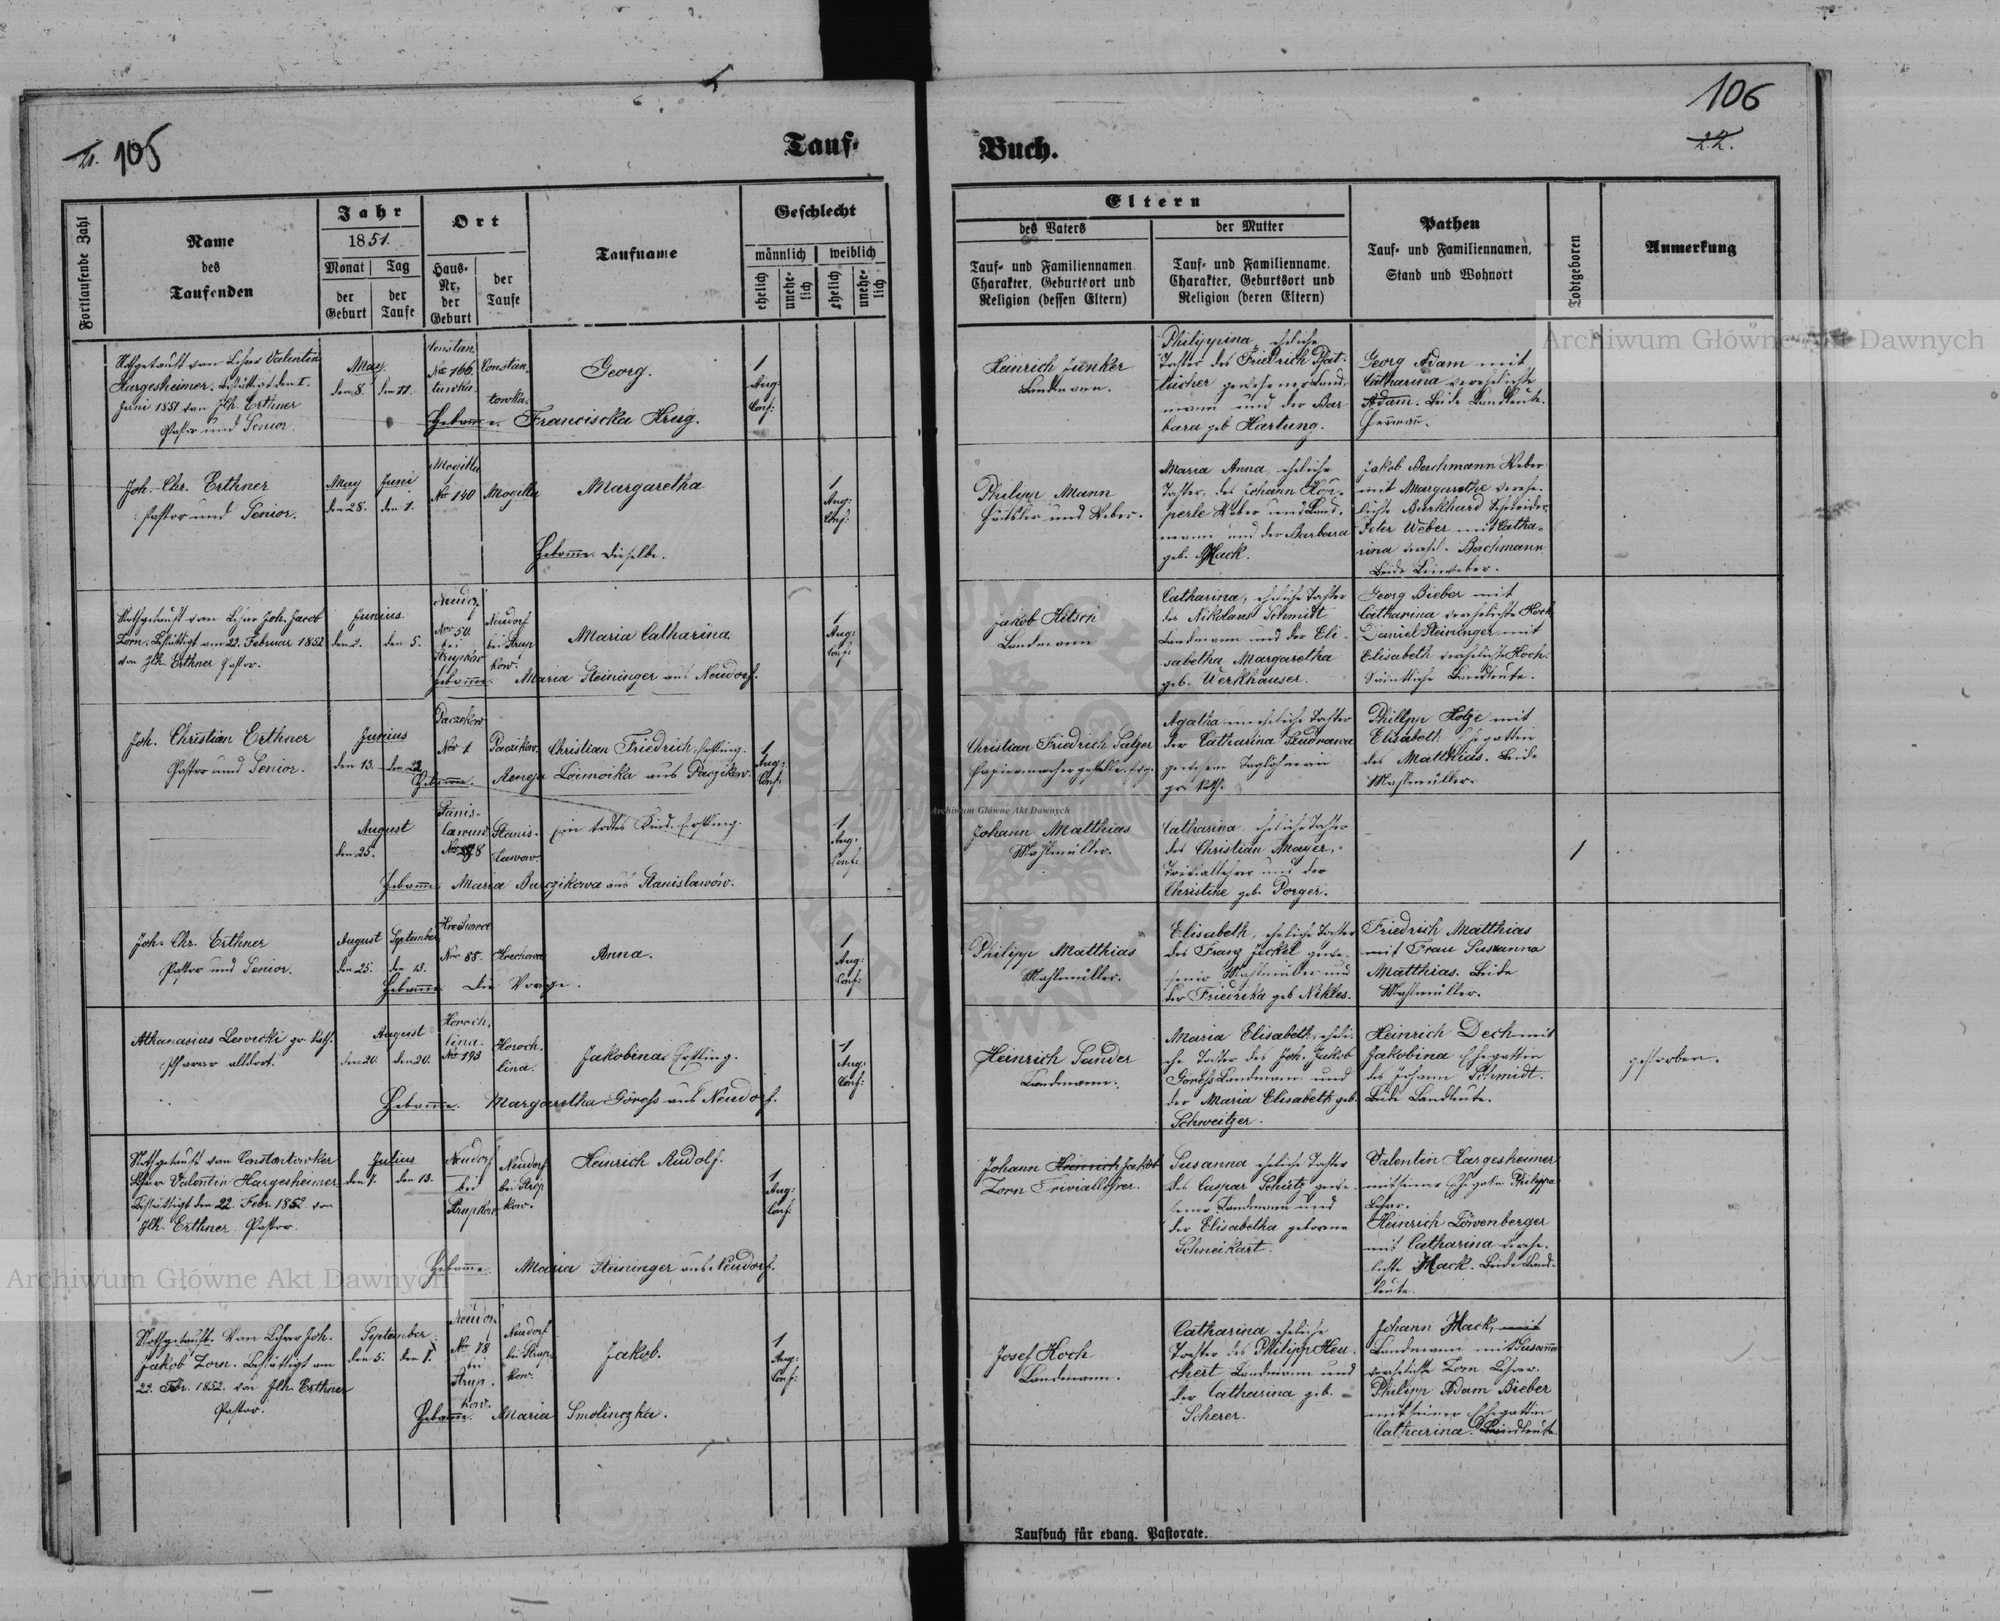 106
21. 105
Tauf-
Buch.
22.
Fortlaufende Zahl
Name
des
Taufenden
Jahr
1851.
Monat
Tag
der
Geburt
der
Taufe
Ort
Haus-
Nr.
der
Geburt
der
Taufe
Taufname
Geschlecht
männlich
weiblich
ehelich
unehe-
lich
ehelich
unehe-
lich
Eltern
des Vaters
der Mutter
Tauf- und Familiennamen
Charakter, Geburtsort und
Religion (dessen Eltern)
Tauf- und Familienname,
Charakter, Geburtsort und
Religion (deren Eltern)
Pathen
Tauf- und Familiennamen,
Stand und Wohnort
Todtgeboren
Anmerkung
Nothgetauft vom Lehrer Valentin
Hargesheimer. Bestättigt den 1.
Juni 1851 von Joh. Erthner
Pastor und Senior.
May
den 8.
den 11.
Constan-
Nro 166.
towka.
Constan-
towka.
Georg.
Hebamme. Franciscka Krug.
1
Aug:
Conf:
Heinrich Junker
Landmann.
Philippina, eheliche
Tochter des Friedrich
gewesener Land-
mann und der Bar-
bara geb Hartung.
Georg Adam mit
Catharina verehelichte
Adam. Beide Landleute.
Joh. Chr. Erthner
Pastor und Senior.
May
den 28.
Juni
den 1.
Mogilla
Nro 140
Mogilla
Margaretha
Hebamme. Dieselbe.
1
Aug:
Conf:
Philipp Mann
Häusler und Weber.
Maria Anna, eheliche
Tochter, des Johann Kör-
perle Weber und Land-
mann und der Barbara
geb. Mack.
Jakob Berchmann Weber
mit Margaretha verehe-
lichte Burkhard Schneider
Peter Weber mit Catha-
rina verehel. Berchmann
Beide Leinweber.
Nothgetauft vom Lehrer Joh. Jacob
Zorn. Bestättigt am 22. Februar 1852
von Joh. Erthner Pastor.
Junius
den 2.
den 5.
Neudorf
Nro 50.
bei
Strupkow
Neudorf
bei Strup-
kow.
Maria Catharina
Hebamme. Maria Steininger aus Neudorf.
1
Aug:
Conf:
Jakob Kitsch
Landmann
Catharina, eheliche Tochter
des Nikolaus Schmidt
Landmann und der Eli-
sabetha Margaretha
geb. Werkhäuser.
Georg Bieber mit
Catharina verehelichte Koch
Daniel Steininger mit
Elisabeth verehelichte Koch.
Sämtliche Landleute.
Joh. Christian Erthner
Pastor und Senior.
Junius
den 13.
den 22.
Paczykow
Nro 1
Paczikow.
Christian Friedrich Erstling.
Hebamme. aus Paczikow.
1
Aug:
Conf:
Christian Friedrich Salzer
Agatha uneheliche Tochter
der Catharina
gewesene Taglöhnerin
gr. kath.
Philipp Kotze mit
Elisabeth Ehegattin
des Matthias. Beide
Mahlmüller.
August
den 25.
Stanis-
lawow
Nro 98
Stanis-
lawow.
Ein todtes Kind. Erstling.
Hebamme. Maria Burczikowa aus Stanislawów.
1
Aug:
Conf:
Johann Matthias
Mahlmüller.
Catharina, eheliche Tochter
des Christian Mayer,
Triviallehrer und der
Christine geb. Porger.
1
Joh. Chr. Erthner
Pastor und Senior.
August
den 25.
September
den 13.
Nro 85.
Anna.
Hebamme. Die Vorige.
1
Aug:
Conf:
Philipp Matthias
Mahlmüller.
Elisabeth, eheliche Tochter
des Franz Jickel gewe-
sener Mahlmüller und
der Friedrika geb Nikles.
Friedrich Matthias
mit Frau Susanna
Matthias. Beide
Mahlmüller.
Athanasius Lewicki gr. kath.
Pfarrer alldort.
August
den 20.
den 20.
Horoch-
lina.
Nro 193
Horoch-
lina.
Jakobina Erstling.
Hebamme. Margaretha Göress aus Neudorf.
1
Aug:
Conf:
Heinrich Sander
Landmann.
Maria Elisabeth, eheli-
che Tochter des Joh. Jakob
Göress Landmann und
der Maria Elisabeth geb.
Schweitzer.
Heinrich Dech mit
Jakobina Ehegattin
des Johann Schmidt.
Beide Landleute.
gestorben.
Nothgetauft vom Constantowker
Lehrer Valentin Hargesheimer
Bestättigt den 22. Febr. 1852 von
Joh. Erthner Pastor.
Julius
den 7.
den 13.
Neudorf
bei
Strupkow
Neudorf
bei Strup-
kow.
Heinrich Rudolf.
Hebamme. Maria Steininger aus Neudorf.
1
Aug:
Conf:
Johann Heinrich Jakob
Zorn Triviallehrer.
Susanna eheliche Tochter
des Caspar Schütz gewe-
sener Landmann und
der Elisabetha geborene
Schneikart.
Valentin Hargesheimer
mit seiner Ehegattin Philippa
Lehrer.
Heinrich Löwenberger
mit Catharina verehe-
lichte Mack. Beide Land-
leute.
Nothgetauft. Von Lehrer Joh.
Jakob Zorn. Bestättigt am
22. Febr. 1852. von Joh. Erthner
Pastor.
September
den 5.
den 7.
Neudorf
Nro 78
bei
Strup-
kow.
Neudorf
bei Strup-
kow.
Jakob.
Hebamme. Maria Smolinczka.
1
Aug:
Conf:
Josef Koch
Landmann.
Catharina eheliche
Tochter des Philipp Heu-
chert Landmann und
der Catharina geb.
Scherer.
Johann Mack, mit
Landmann mit Susanna
verehelichte Zorn Lehrer.
Philipp Adam Bieber
mit seiner Ehegattin
Catharina. Landleute.
Taufbuch für evang. Pastorate.
Archiwum Główne Akt Dawnych
Archiwum Główne Akt Dawnych
Archiwum Główne Akt Dawnych